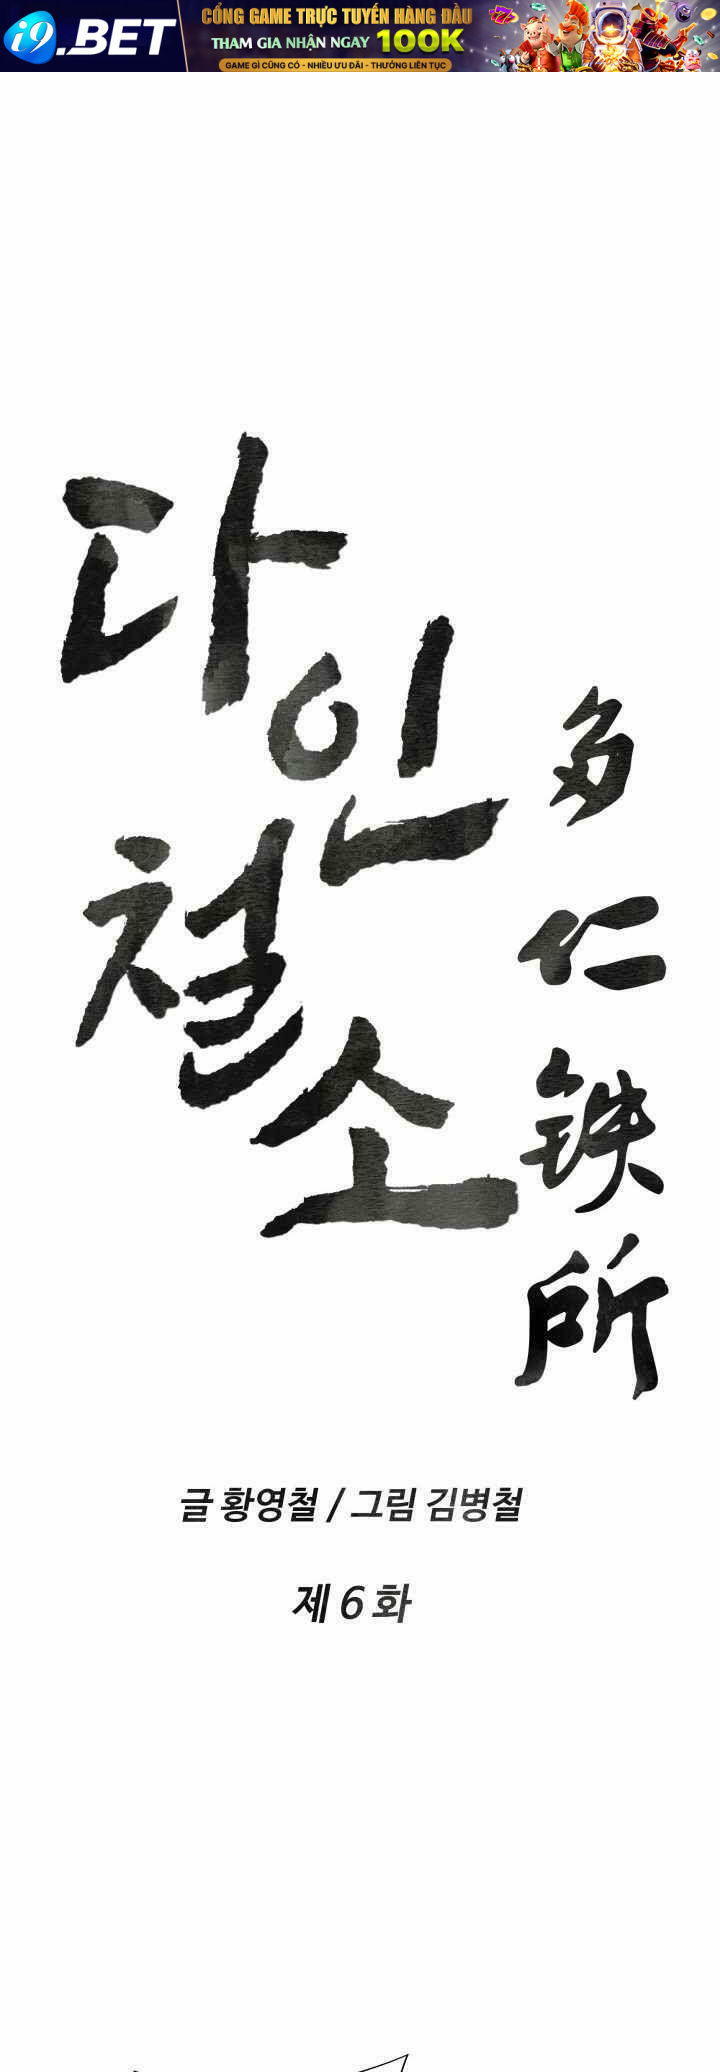 i9.BET
CỔNG GAME TRỰC TUYẾN HÀNG ĐẦU
THAM GIA NHẬN NGAY 100K
GAME GÌ CŨNG CÓ - NHIỀU ƯU ĐÃI - THƯỞNG LIÊN TỤC
다인
철소
多仁鉄所
글 황영철 / 그림 김병철
제 6 화